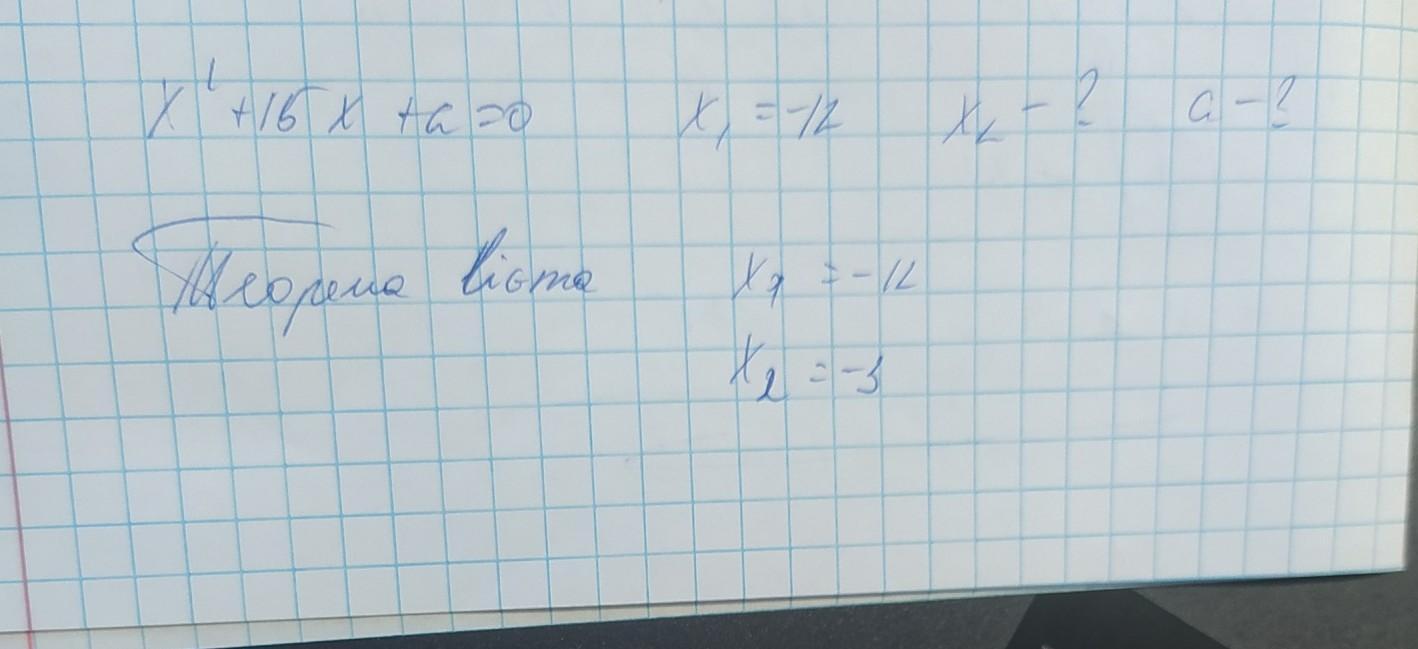 x² + 15x + a = 0    x₁ = -12    x₂ - ?    a - ?
Теорема Вієта    x₁ = -12
x₂ = -3